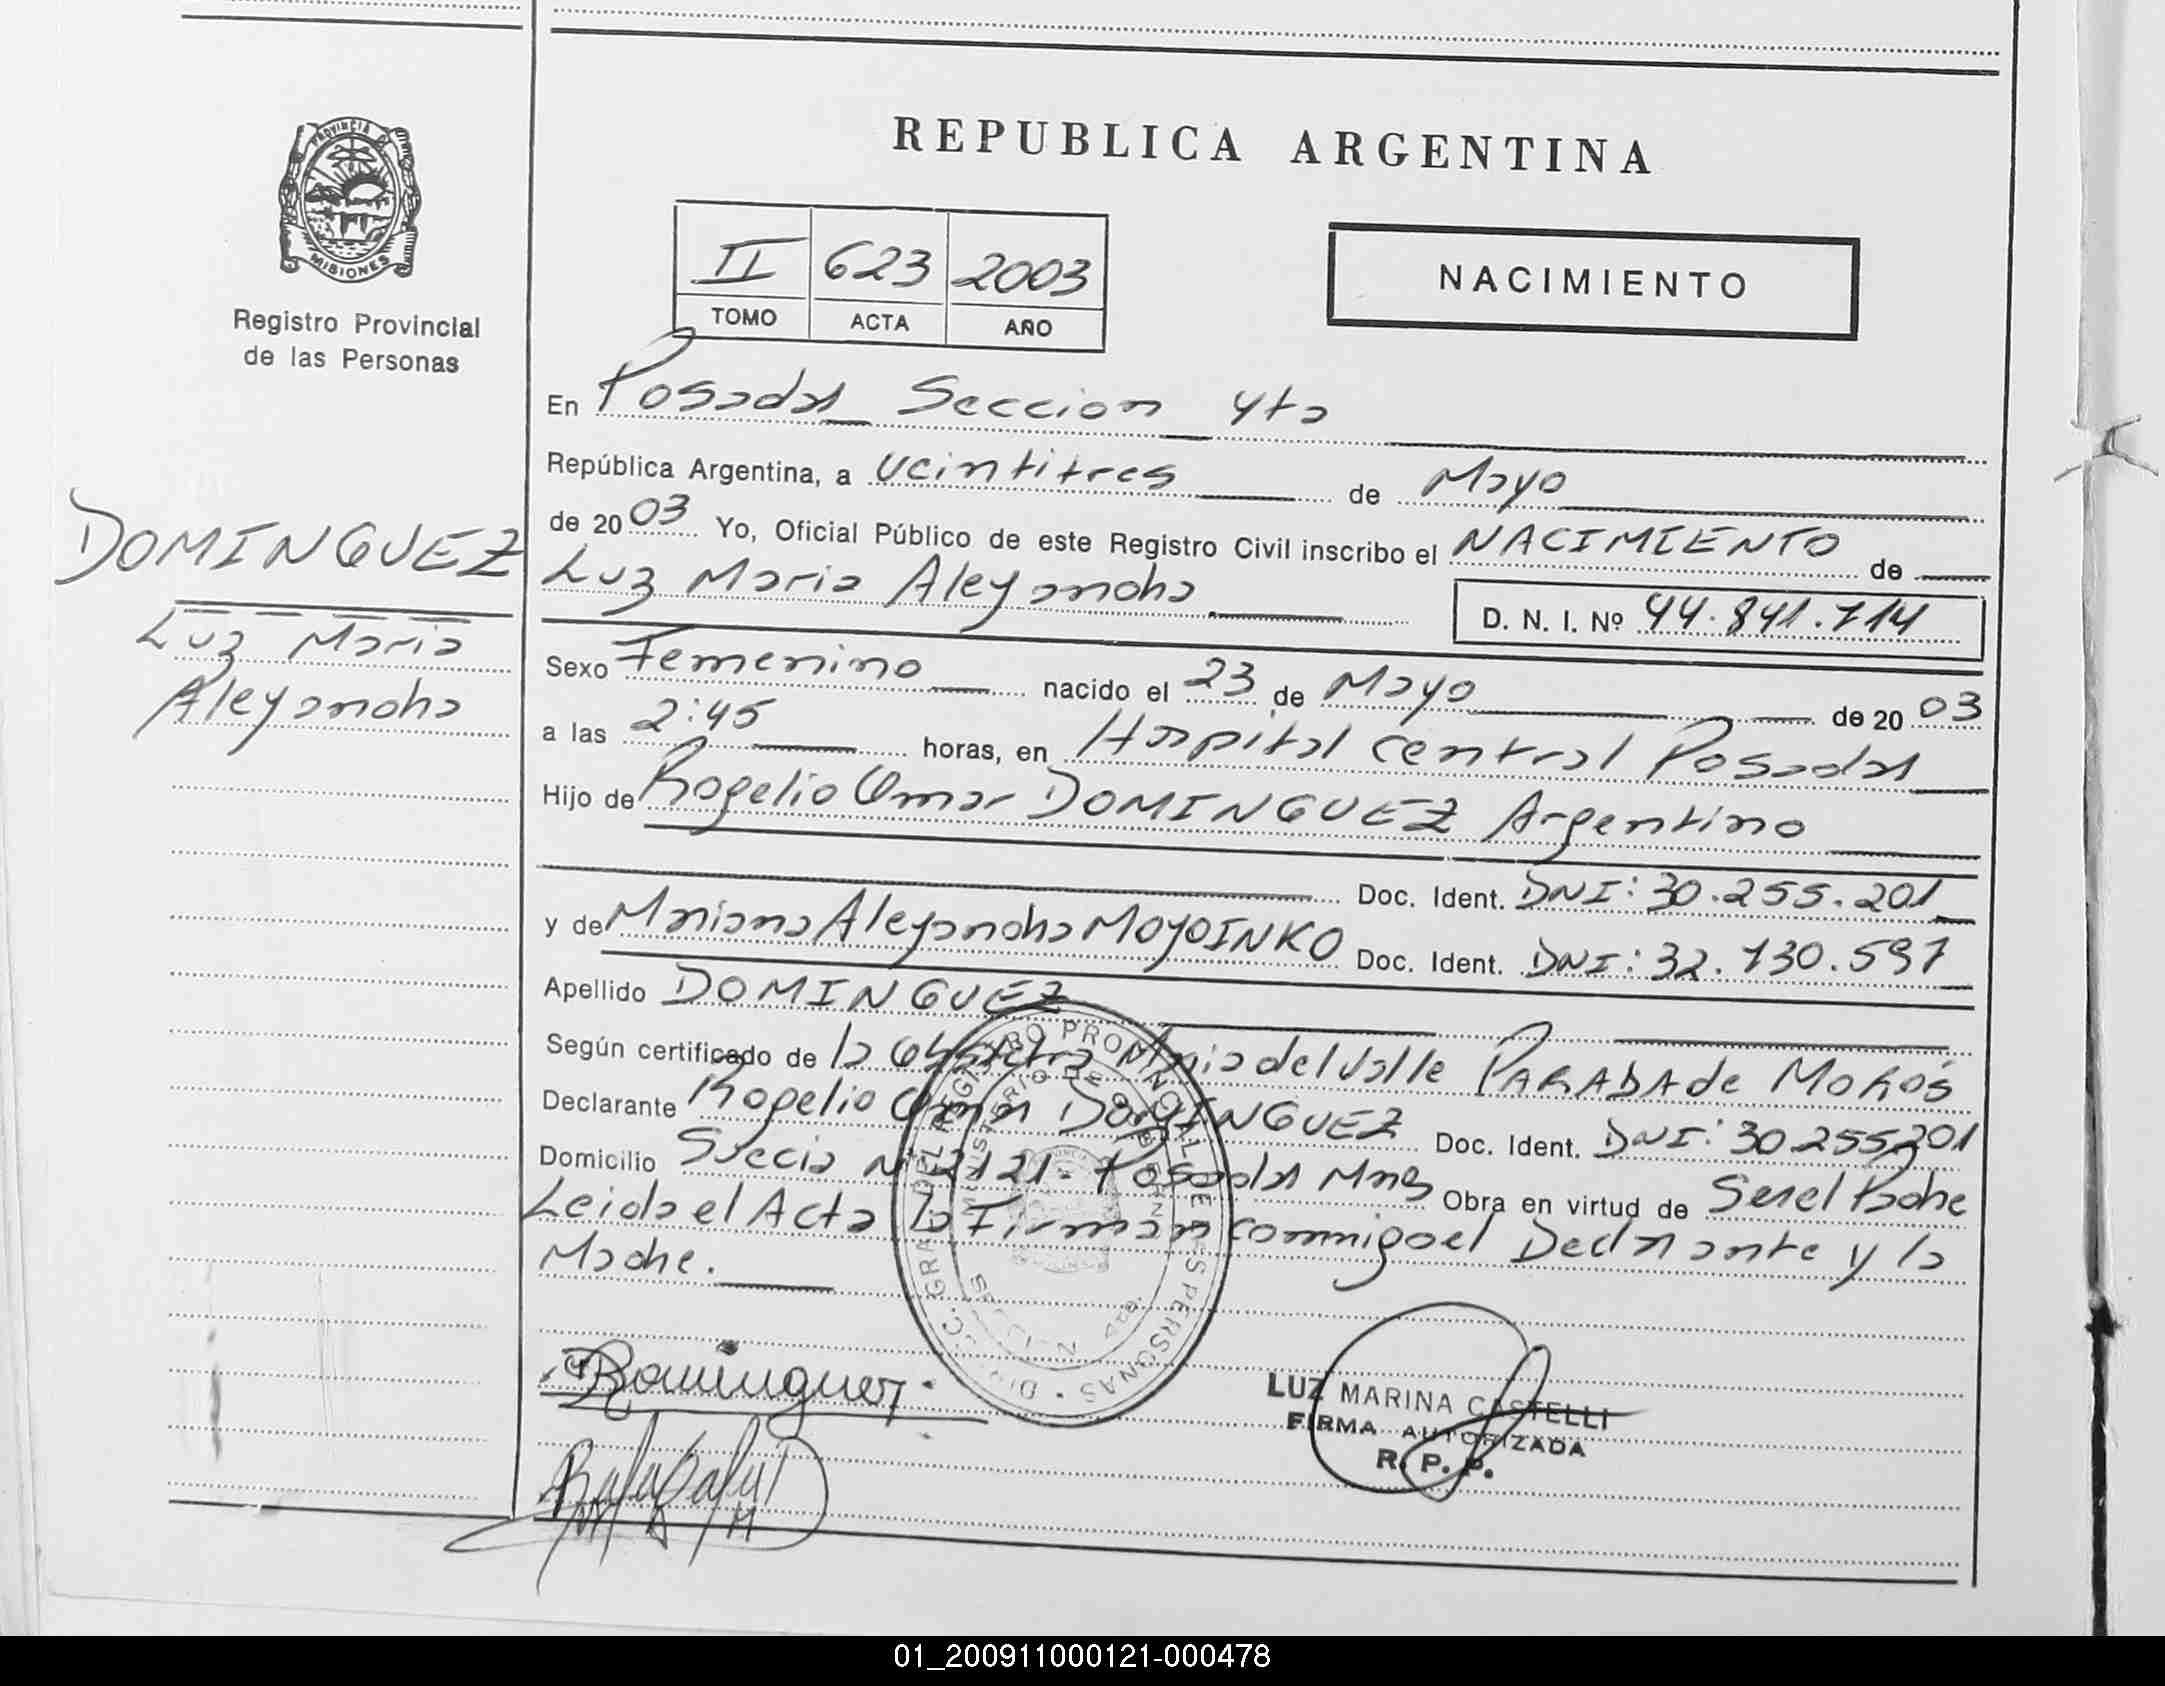 REPUBLICA ARGENTINA
PROVINCIA DE
MISIONES
Registro Provincial
de las Personas
II 623 2003
TOMO ACTA AÑO
NACIMIENTO
DOMINGUEZ
Luz Maria
Aleyandra
En Posadas Seccion 4ta
República Argentina, a veintitres de Mayo
de 2003 Yo, Oficial Público de este Registro Civil inscribo el NACIMIENTO de
Luz Maria Aleyandra D. N. I. Nº 44.841.714
Sexo Femenino nacido el 23 de Mayo de 2003
a las 2:45 horas, en Hospital Central Posadas
Hijo de Rogelio Omar DOMINGUEZ Argentino
Doc. Ident. DNI: 30.255.201
y de Mariana Aleyandra MOYOINKO Doc. Ident. DNI: 32.730.597
Apellido DOMINGUEZ
Según certificado de la Obstetra del Valle PARABA de
Declarante Rogelio Omar DOMINGUEZ Doc. Ident. DNI: 30255201
Domicilio Suecia Nº 2121 - Posadas Mnes Obra en virtud de Ser el Padre
Leida el Acta la Firman conmigo el Declarante y la
Madre.
REGISTRO PROVINCIAL DE LAS PERSONAS
MINISTERIO DE GOBIERNO
Dominguez
LUZ MARINA CASTELLI
FIRMA AUTORIZADA
R. P. P.
01_200911000121-000478